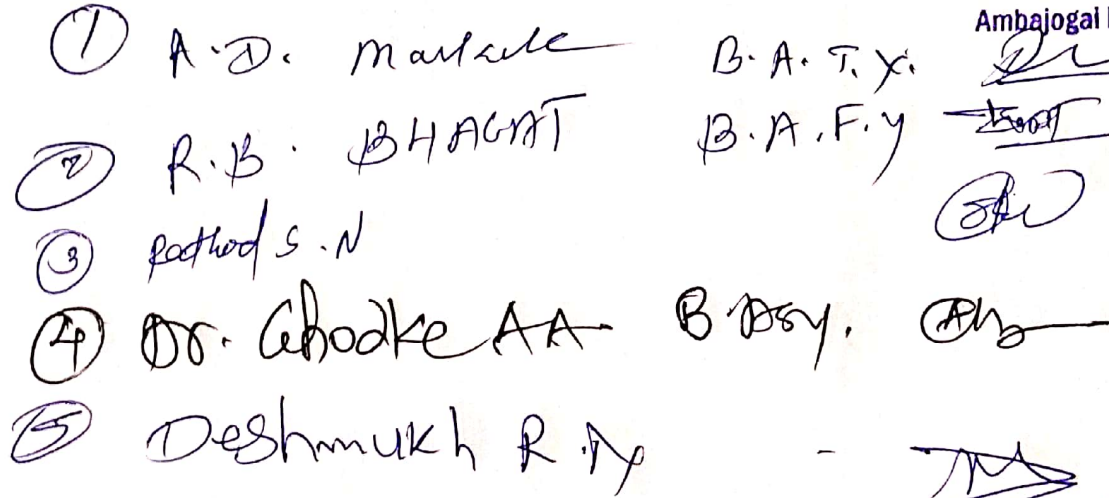 Ambajogai
① A.D. B.A. T.Y.
② R.B. BHAGAT B.A.F.Y
③ Rathod S.N
④ Dr. Ghodke AA B.A S.Y.
⑤ Deshmukh R. -